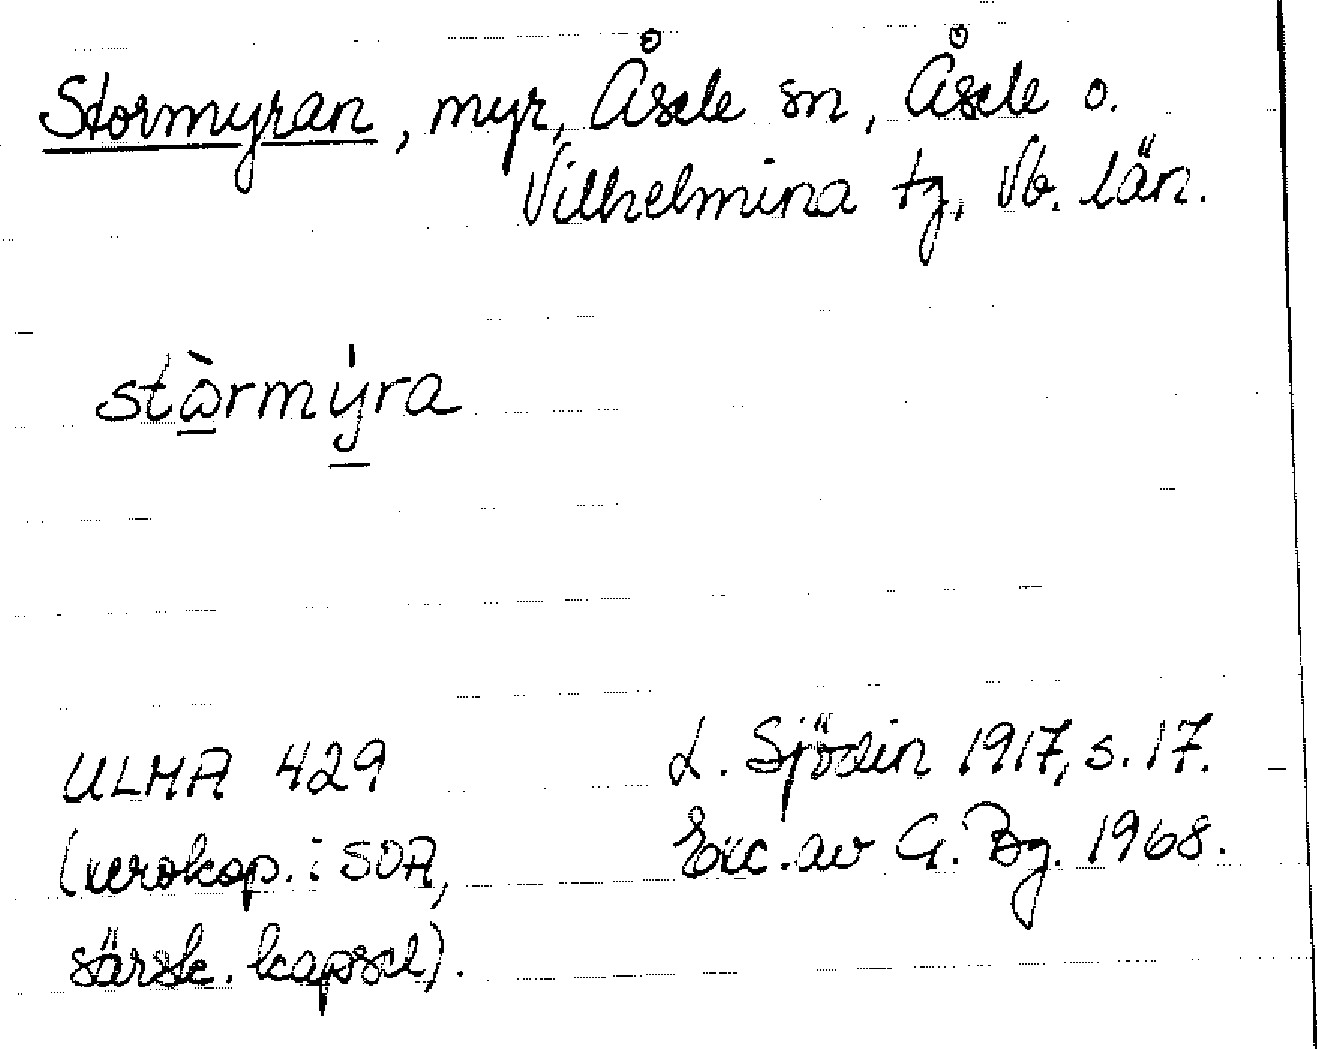 Stormyran, myr, Åsele sn, Åsele o.
Vilhelmina tg, Vb. län.
stɷ̱̀rmý̱ra
ULMA 429
(xerokop. i SOA,
särsk. kapsel).
L. Sjödin 1917, s. 17.
Exc. av G. Bg. 1968.